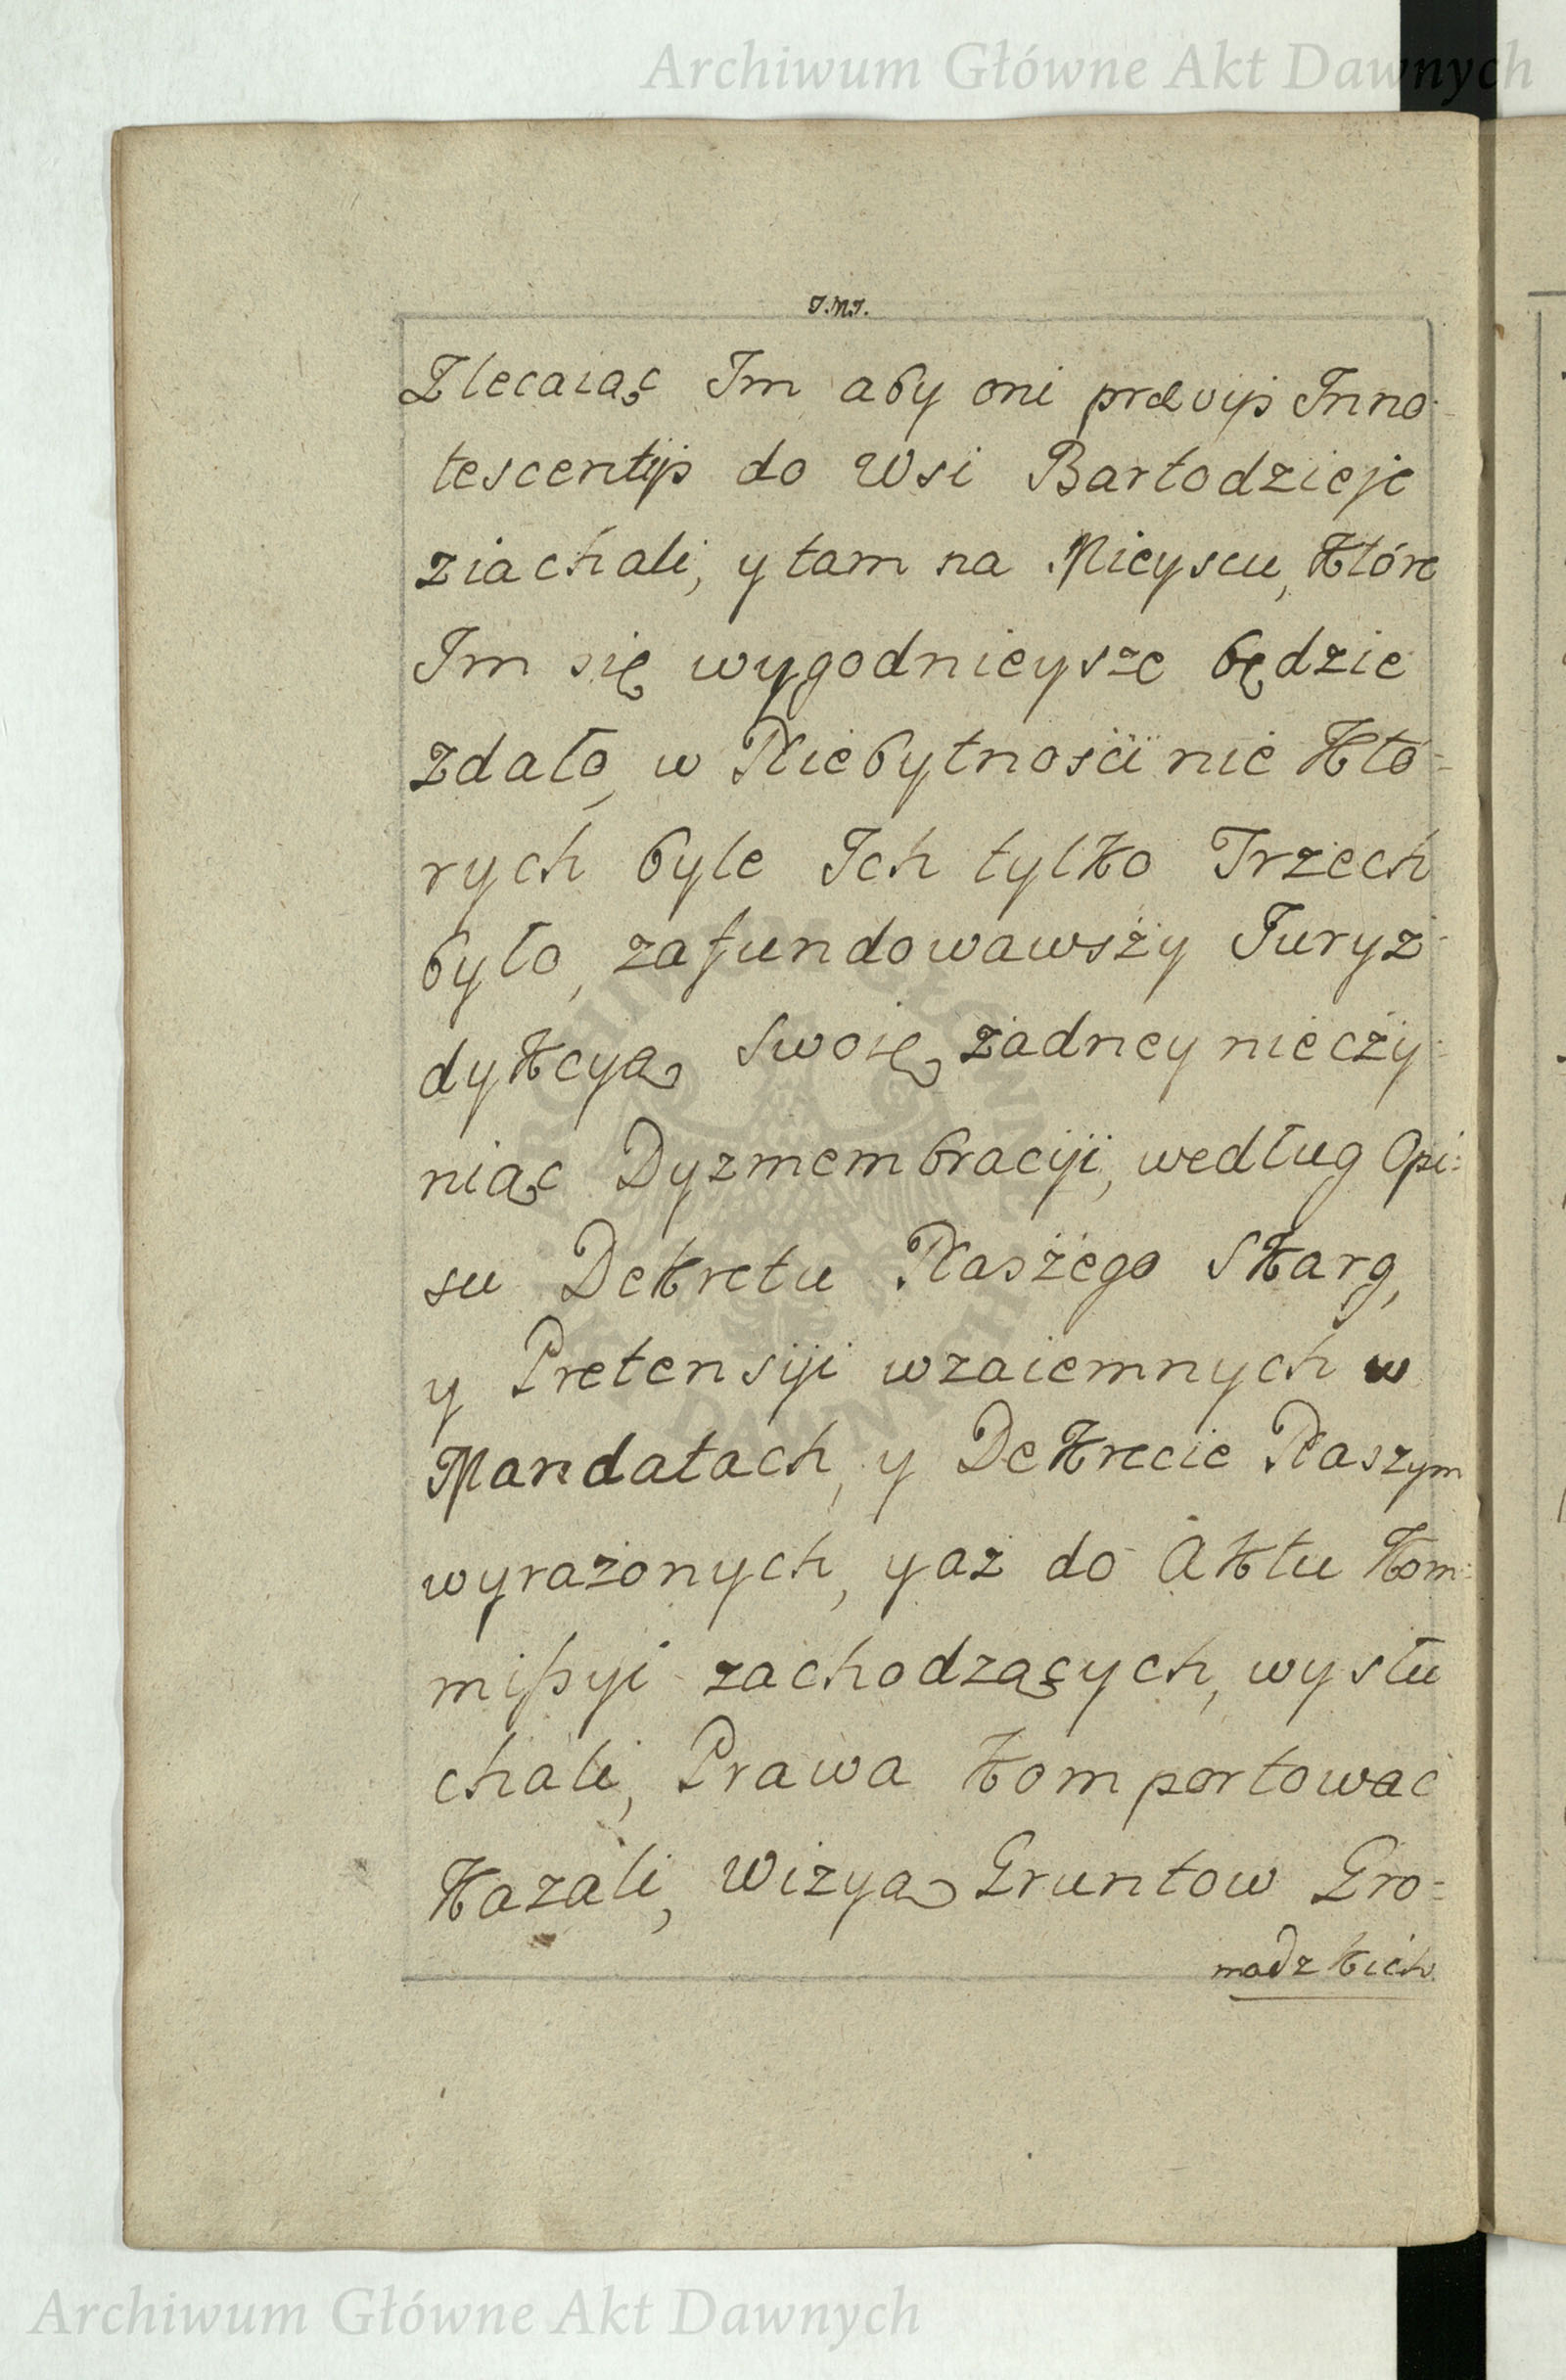 Archiwum Główne Akt Dawnych
J.M.J.
Zlecaiąc Im aby oni prævijs Inno-
tescentijs do Wsi Bartodzieje
ziachali, y tam na Mieyscu, Które
Im się wygodnieysze będzie
zdało, w Niebytnosci nie Któ-
rych byle Ich tylko Trzech
było, zafundowawszy Juryz-
dykcyą swoię żadney nie czy-
niąc Dyzmembracyi, według Opi-
su Dekretu Naszego skarg,
y Pretensyi wzaiemnych w
Mandatach, y Dekrecie Naszym
wyrażonych, y aż do Aktu Kom-
mißyi zachodzących, wysłu
chali, Prawa komportować
Kazali, Wizyą Gruntow Gro-
madzkich
Archiwum Główne Akt Dawnych